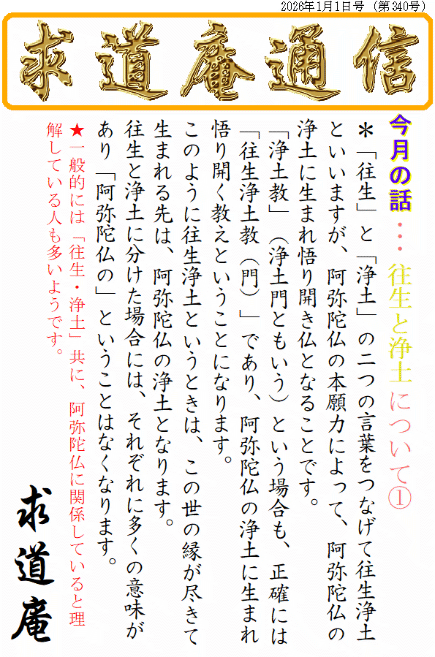 2026年1月1日号（第340号）
求道庵通信
今月の話…往生と浄土について①
＊「往生」と「浄土」の二つの言葉をつなげて往生浄土
といいますが、阿弥陀仏の本願力によって、阿弥陀仏の
浄土に生まれ悟り開き仏となることです。
「浄土教」（浄土門ともいう）という場合も、正確には
「往生浄土教（門）」であり、阿弥陀仏の浄土に生まれ
悟り開く教えということになります。
このように往生浄土というときは、この世の縁が尽きて
生まれる先は、阿弥陀仏の浄土となります。
往生と浄土に分けた場合には、それぞれに多くの意味が
あり「阿弥陀仏の」ということはなくなります。
★一般的には「往生・浄土」共に、阿弥陀仏に関係していると理
解している人も多いようです。
求道庵